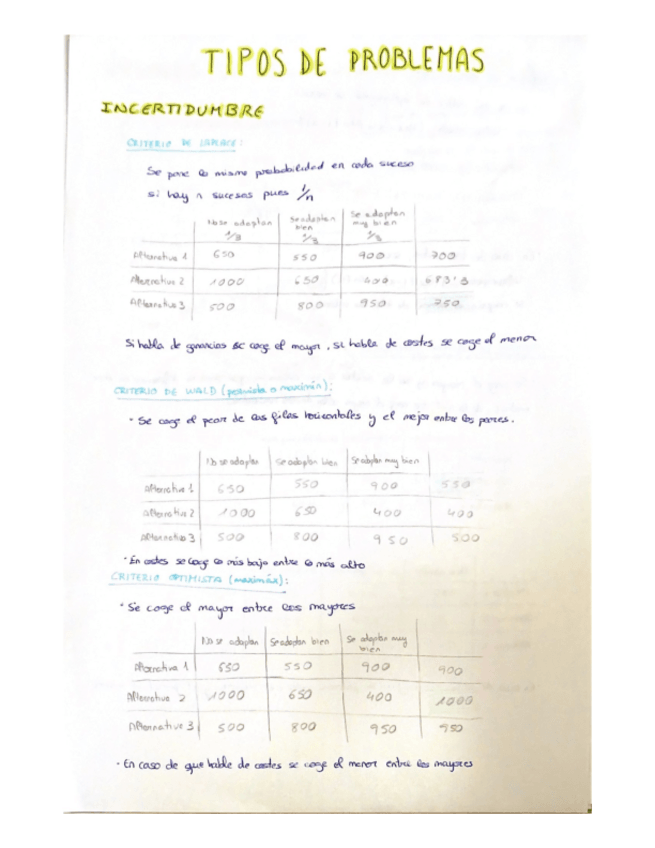 TIPOS DE PROBLEMAS
INCERTIDUMBRE
CRITERIO DE LAPLACE:
Se pone la misma probabilidad en cada suceso
si hay n sucesos pues 1/n
No se adaptan 1/3 Se adaptan bien 1/3 Se adaptan muy bien 1/3
Alternativa 1 650 550 900 700
Alternativa 2 1000 650 400 683'3
Alternativa 3 500 800 950 750
Si habla de ganancias se coge el mayor, si habla de costes se coge el menor
CRITERIO DE WALD (pesimista o maximín):
· Se coge el peor de las filas horizontales y el mejor entre los peores.
No se adaptan Se adaptan bien Se adaptan muy bien
Alternativa 1 650 550 900 550
Alternativa 2 1000 650 400 400
Alternativa 3 500 800 950 500
· En costes se coge lo más bajo entre lo más alto
CRITERIO OPTIMISTA (maximáx):
· Se coge el mayor entre los mayores
No se adaptan Se adaptan bien Se adaptan muy bien
Alternativa 1 650 550 900 900
Alternativa 2 1000 650 400 1000
Alternativa 3 500 800 950 950
· En caso de que hable de costes se coge el menor entre los mayores